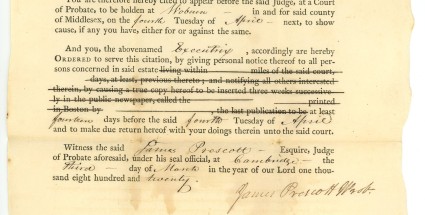 You are therefore hereby cited to appear before the said Judge, at a Court of
Probate, to be holden at Woburn — in and for said county
of Middlesex, on the fourth Tuesday of April — next, to show
cause, if any you have, either for or against the same.
And you, the abovenamed Executrix, accordingly are hereby
ORDERED to serve this citation, by giving personal notice thereof to all per-
sons concerned in said estate living within miles of the said court,
days, at least, previous thereto; and notifying all others interested
therein, by causing a true copy hereof to be inserted three weeks successive-
ly in the public newspaper, called the printed
in Boston by , the last publication to be at least
fourteen days before the said fourth Tuesday of April
and to make due return hereof with your doings therein unto the said court.
Witness the said James Prescott — Esquire, Judge
of Probate aforesaid, under his seal official, at Cambridge — the
third — day of March in the year of our Lord one thou-
sand eight hundred and twenty.
James Prescott